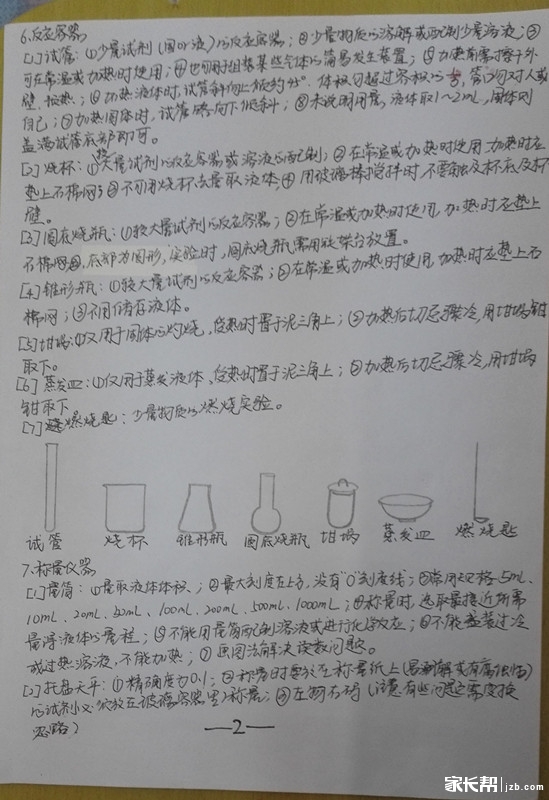 6.反应容器
[1]试管:①少量试剂(固or液)的反应容器;②少量物质的溶解或配制少量溶液;③
可在常温或加热时使用;④也可用于组装某些气体的简易发生装置;⑤加热前需擦干外
壁、预热;⑥加热液体时,试管斜向上倾约45°,体积勿超过容积的⅓,管口勿对人或
自己;⑦加热固体时,试管略向下倾斜;⑧未说明用量,液体取1~2mL,固体对
盖满试管底部即可。
[2]烧杯:①较大量试剂的反应容器或溶液的配制;②在常温或加热时使用,加热时应
垫上石棉网;③不可用烧杯去量取液体;④用玻璃棒搅拌时,不要触及杯底及杯
壁。
[3]圆底烧瓶:①较大量试剂的反应容器;②在常温或加热时使用,加热时应垫上
石棉网;③底部为圆形,实验时,圆底烧瓶需用铁架台放置。
[4]锥形瓶:①较大量试剂的反应容器;②在常温或加热时使用,加热时应垫上石
棉网;③不用储存液体。
[5]坩埚:①仅用于固体的灼烧,受热时置于泥三角上;②加热后切忌骤冷,用坩埚钳
取下。
[6]蒸发皿:①仅用于蒸发液体,受热时置于泥三角上;②加热后切忌骤冷,用坩埚
钳取下
[7]燃烧匙:少量物质的燃烧实验。
试管 烧杯 锥形瓶 圆底烧瓶 坩埚 蒸发皿 燃烧匙
7.称量仪器
[1]量筒:①量取液体体积;②最大刻度在上方,没有“0”刻度线;③常用规格5mL、
10mL、20mL、50mL、100mL、200mL、500mL、1000mL;④称量时,选取最接近所需
量得液体的量程;⑤不能用量筒配制溶液或进行化学反应;⑥不能盛装过冷
或过热溶液,不能加热;⑦画图法解决读数问题。
[2]托盘天平:①精确度为0.1;②称量时要放在称量纸上(易潮解或有腐蚀性
的试剂必须放在玻璃容器里)称量;③左物右码(注意有些问题之需变换
思路)
—2—
家长帮 jzb.com